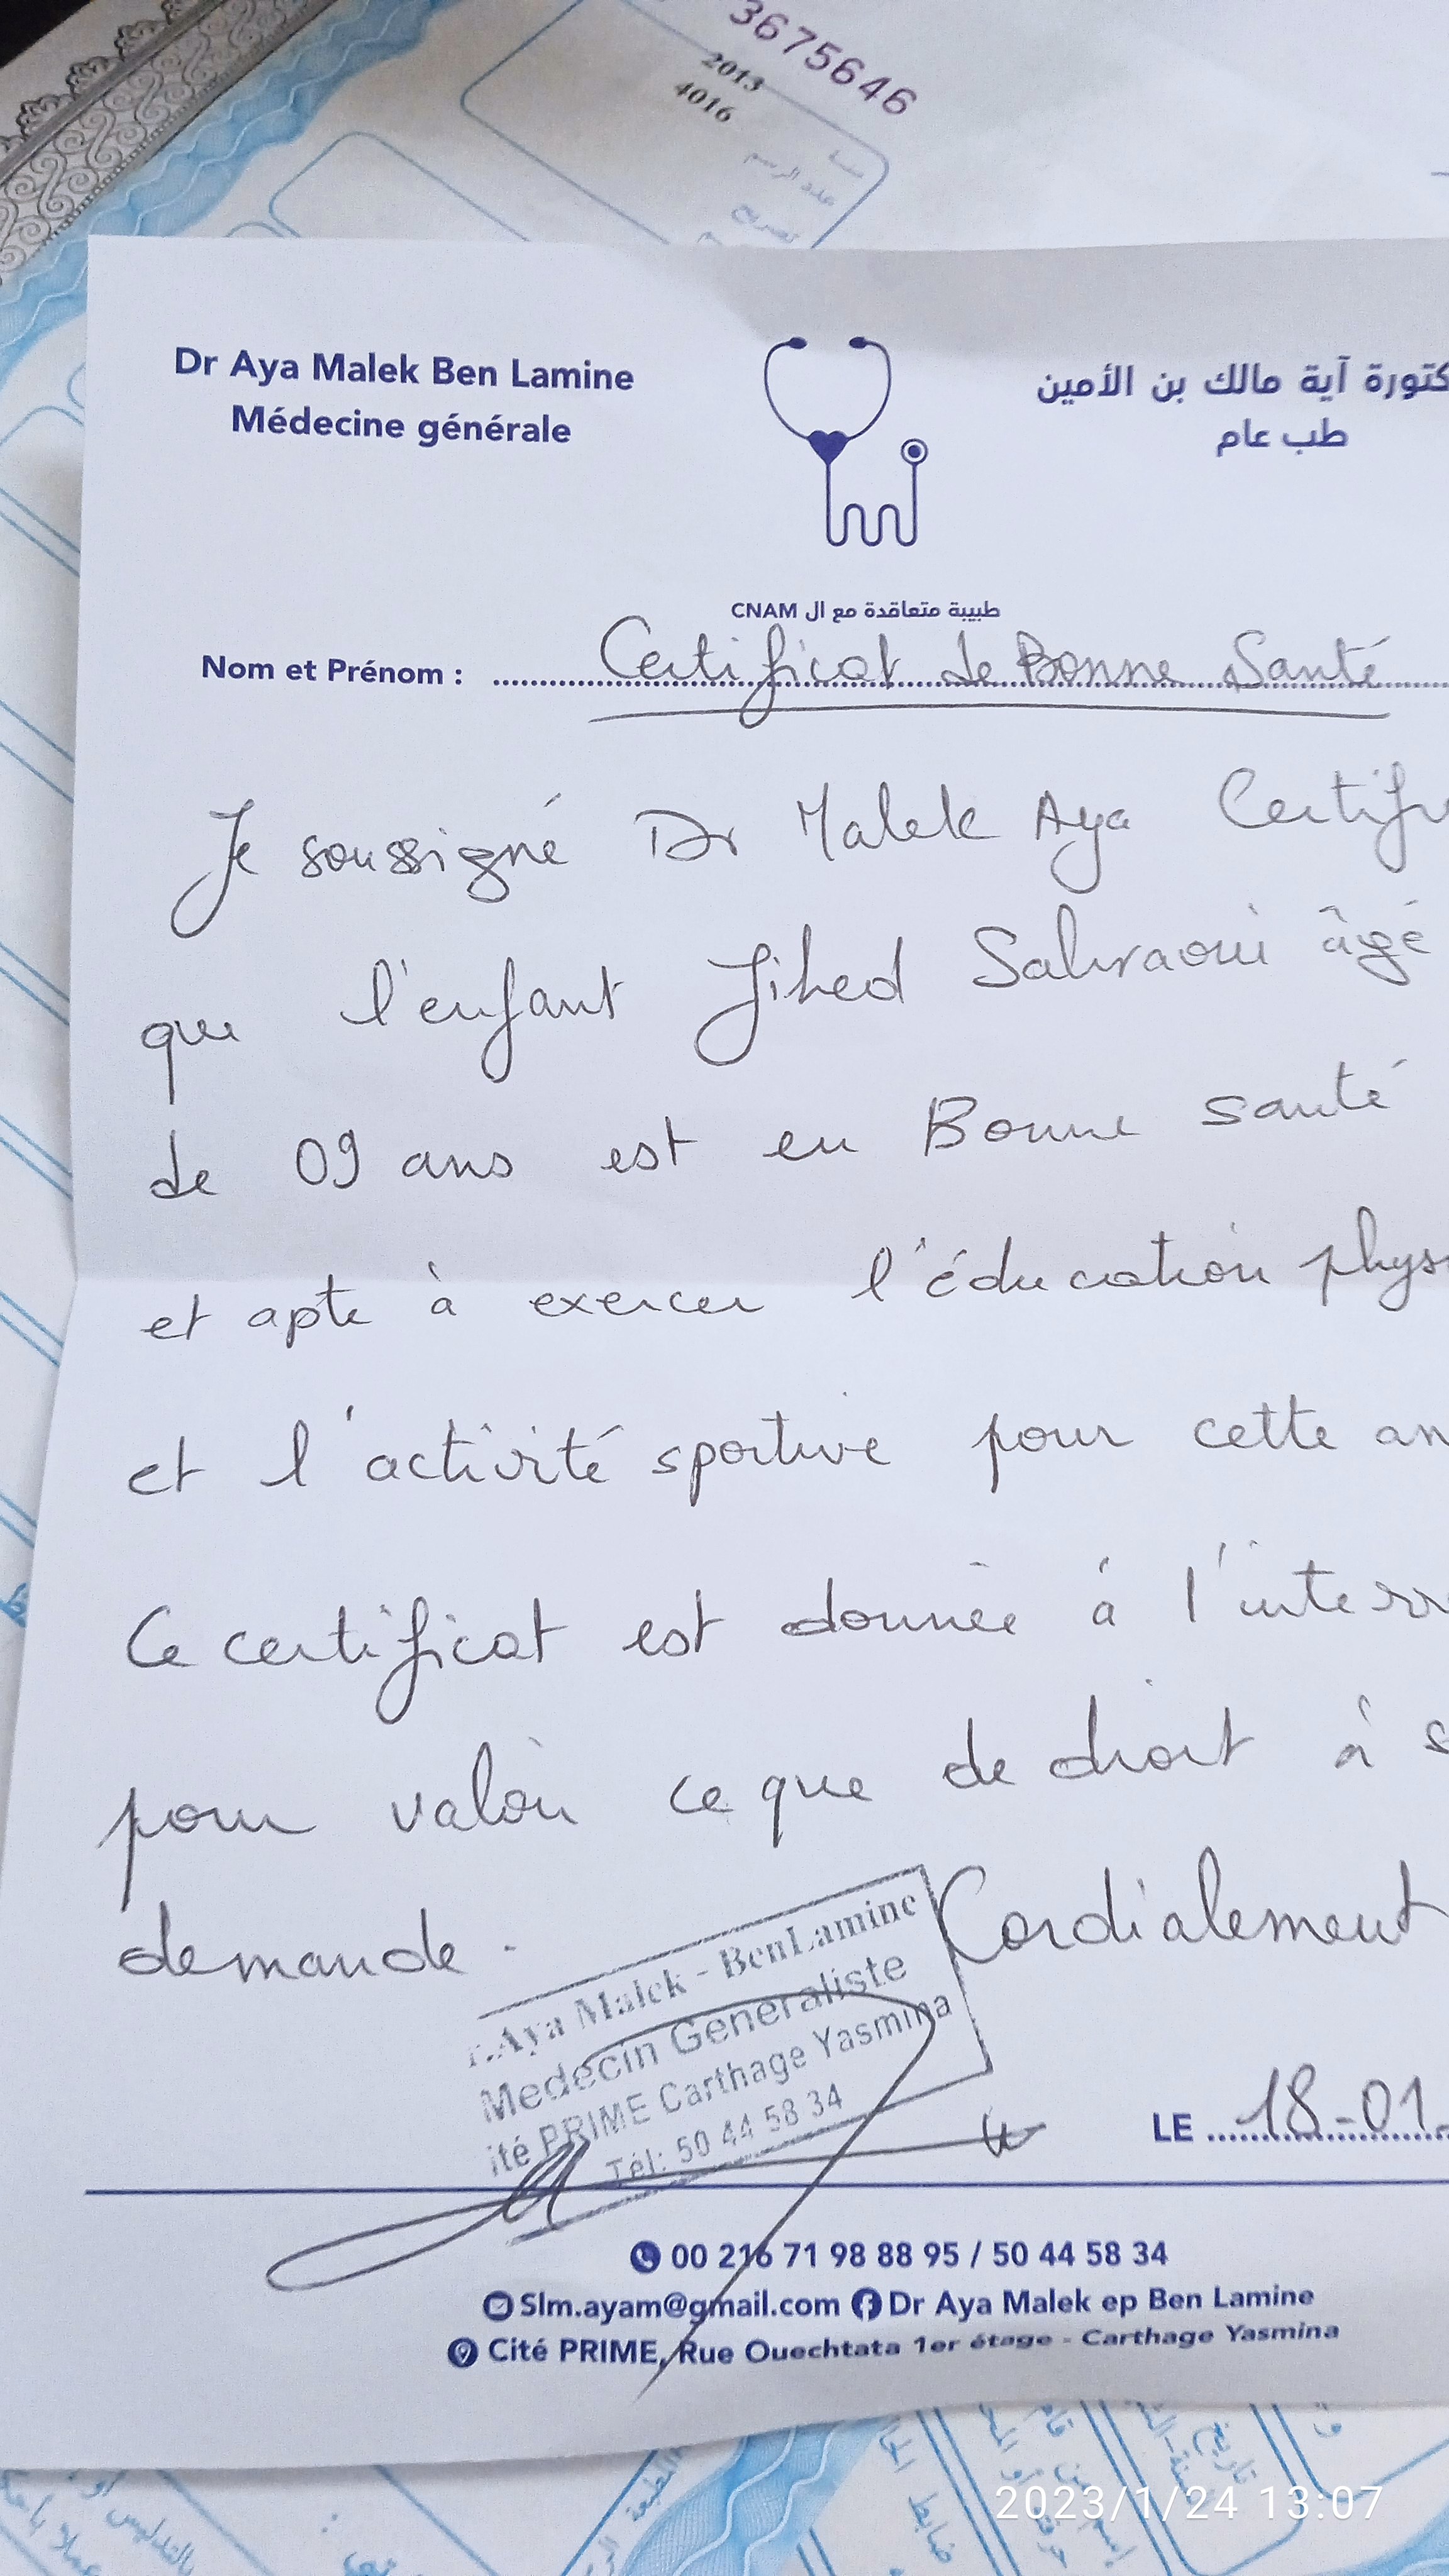 3675646
2013
4016
عدد الرسم
Dr Aya Malek Ben Lamine
Médecine générale
كتورة آية مالك بن الأمين
طب عام
طبيبة متعاقدة مع ال CNAM
Nom et Prénom : Certificat de Bonne Santé
Je soussigné Dr Malek Aya Certif
que l'enfant Jihed Sahraoui âgé
de 09 ans est en Bonne santé
et apte à exercer l'éducation phys
et l'activité sportive pour cette an
Ce certificat est donnée à l'inter
pour valoir ce que de droit à s
demande. Cordialement
r.Aya Malek - BenLamine
Medecin Generaliste
ité PRIME Carthage Yasmina
Tél: 50 44 58 34
LE 18-01.
00 216 71 98 88 95 / 50 44 58 34
Slm.ayam@gmail.com Dr Aya Malek ep Ben Lamine
Cité PRIME, Rue Ouechtata 1er étage - Carthage Yasmina
2023/1/24 13:07